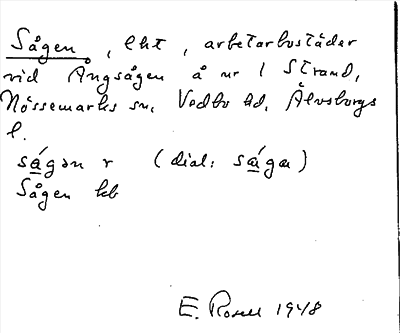 Sågen, lht, arbetarbostäder
vid Ångsågen å nr 1 Strand,
Nössemarks sn, Vedbo hd, Älvsborgs
l.
ság̊ən r (dial: ság̊a)
Sågen kb
E. Rosell 1948